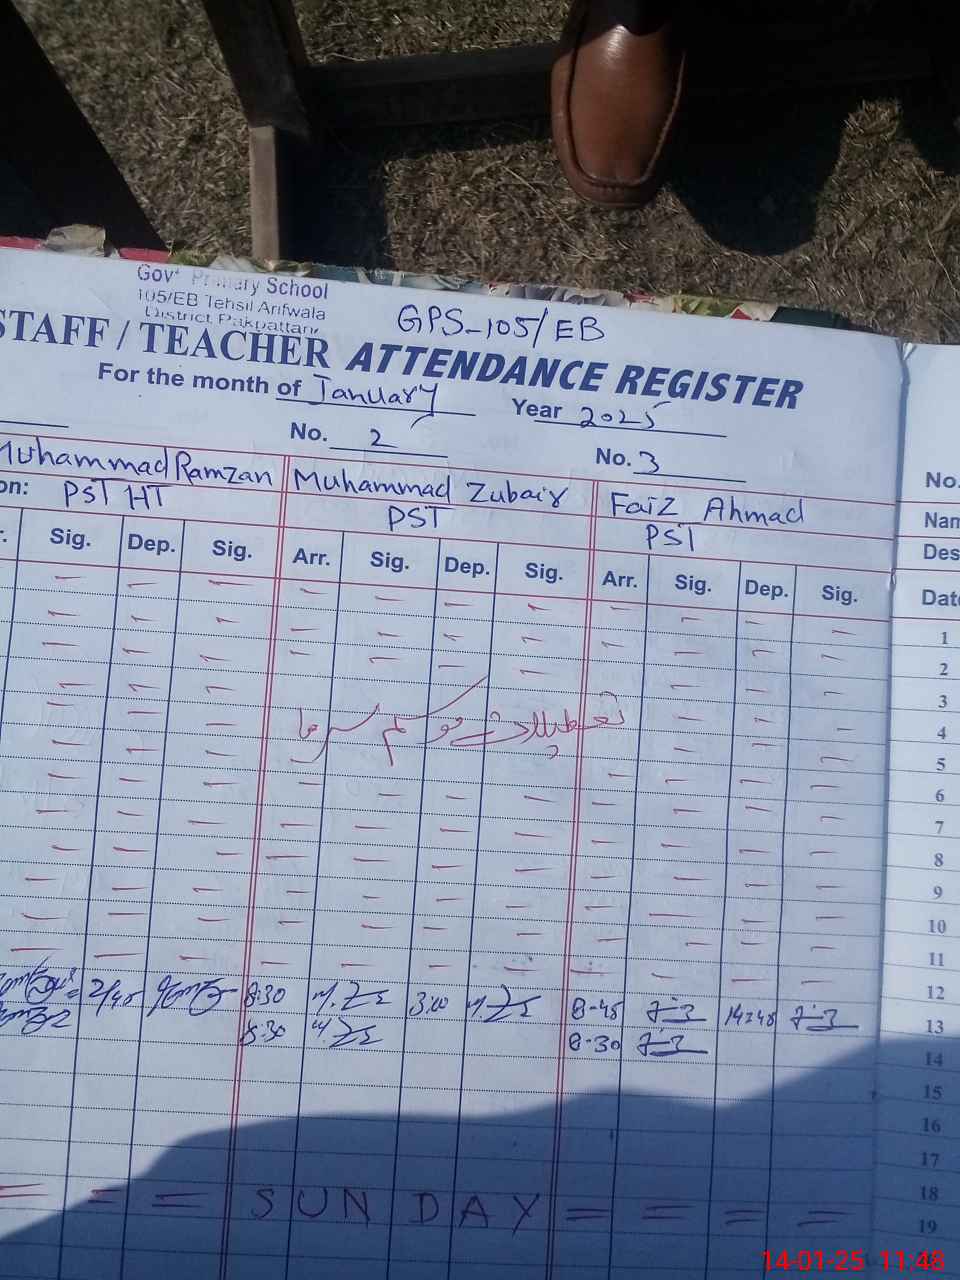 Govt Primary School
105/EB Tehsil Arifwala
District Pakpattan
GPS-105/EB
STAFF / TEACHER ATTENDANCE REGISTER
For the month of January Year 2025
No. 2 No. 3 No.
Muhammad Ramzan Muhammad Zubair Faiz Ahmad Nam
on: PST HT PST PST Des
Sig. Dep. Sig. Arr. Sig. Dep. Sig. Arr. Sig. Dep. Sig. Date
1
2
3
تعطیلات موسم سرما
4
5
6
7
8
9
10
11
12
2/45 8:30 3:00 8-45 14:45
13
8:30 8-30
14
15
16
17
18
= = = S U N D A Y = = = =
19
14-01-25 11:48